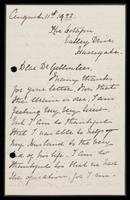 August 11th 1922.
The
Valley Drive
Harrogate.
Dear Dr
Many thanks
for your letter. Now that
the strain is over, I am
feeling very
but I am so thankful
that I was able to help
my husband to the very
end of his life. I am so
thankful too that we had
the operation, for I am